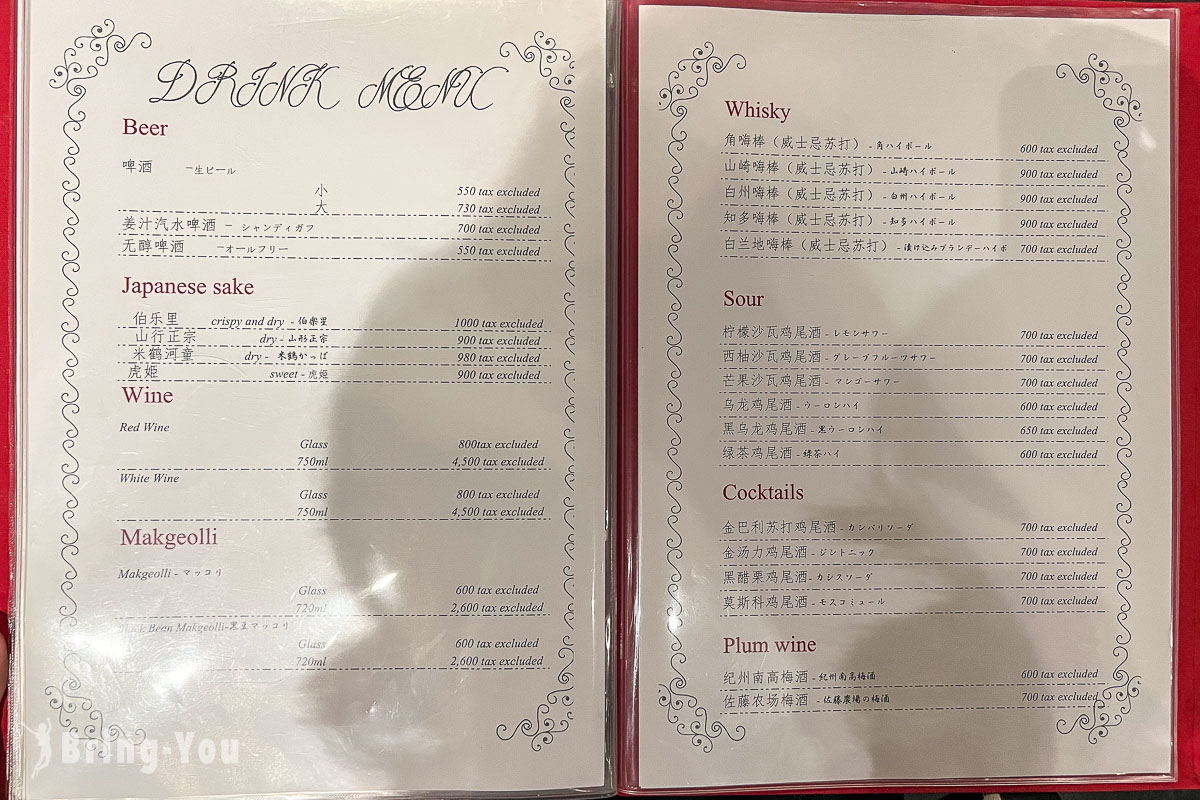 DRINK MENU
Beer
啤酒 －生ビール
小 550 tax excluded
大 730 tax excluded
姜汁汽水啤酒 － シャンディガフ 700 tax excluded
无醇啤酒 －オールフリー 550 tax excluded
Japanese sake
伯乐里 crispy and dry - 伯楽星 1000 tax excluded
山行正宗 dry - 山形正宗 900 tax excluded
米鹤河童 dry - 米鶴かっぱ 980 tax excluded
虎姫 sweet - 虎姫 900 tax excluded
Wine
Red Wine
Glass 800tax excluded
750ml 4,500 tax excluded
White Wine
Glass 800 tax excluded
750ml 4,500 tax excluded
Makgeolli
Makgeolli - マッコリ
Glass 600 tax excluded
720ml 2,600 tax excluded
Black Bean Makgeolli-黒豆マッコリ
Glass 600 tax excluded
720ml 2,600 tax excluded
Whisky
角嗨棒（威士忌苏打） - 角ハイボール 600 tax excluded
山崎嗨棒（威士忌苏打） - 山崎ハイボール 900 tax excluded
白州嗨棒（威士忌苏打） - 白州ハイボール 900 tax excluded
知多嗨棒（威士忌苏打） - 知多ハイボール 900 tax excluded
白兰地嗨棒（威士忌苏打） - 漬け込みブランデーハイボ 700 tax excluded
Sour
柠檬沙瓦鸡尾酒 - レモンサワー 700 tax excluded
西柚沙瓦鸡尾酒 - グレープフルーツサワー 700 tax excluded
芒果沙瓦鸡尾酒 - マンゴーサワー 700 tax excluded
乌龙鸡尾酒 - ウーロンハイ 600 tax excluded
黑乌龙鸡尾酒 - 黒ウーロンハイ 650 tax excluded
绿茶鸡尾酒 - 緑茶ハイ 600 tax excluded
Cocktails
金巴利苏打鸡尾酒 - カンパリソーダ 700 tax excluded
金汤力鸡尾酒 - ジントニック 700 tax excluded
黑醋栗鸡尾酒 - カシスソーダ 700 tax excluded
莫斯科鸡尾酒 - モスコミュール 700 tax excluded
Plum wine
纪州南高梅酒 - 紀州南高梅酒 600 tax excluded
佐藤农场梅酒 - 佐藤農場の梅酒 700 tax excluded
Bring You